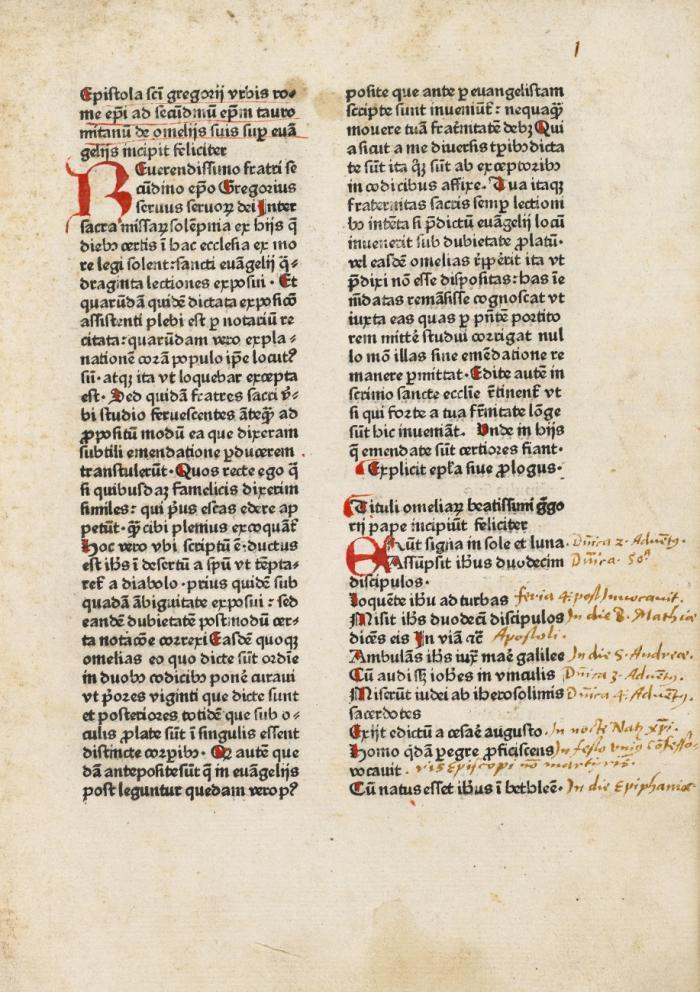 Epistola scī gregorij vrbis ro⸗
me ep̄i ad secūdinū ep̄m tauro
mitanū de omelijs suis sup̱ euā
gelijs incipit feliciter
REuerendissimo fratri se
cūdino ep̄o Gregorius
seruus seruoꝝ dei Inter
sacra missaꝝ solēpnia ex hijs q̄
dieb⁹ certis ī hac ecclesia ex mo
re legi solent: sancti euāgelij q̄⸗
draginta lectiones exposui · Et
quarūdā quidē dictata exposicō
assistenti plebi est ꝑ notariū re
citata: quarūdam vero expla⸗
nationē corā populo ip̄e locut⁹
sū · atq̨ ita vt loquebar excepta
est · Sed quidā fratres sacri v̄⸗
bi studio feruescentes āteq̄ȝ ad
ꝓpositū modū ea que dixeram
subtili emendatione ꝑducerem
transtulerūt · Quos recte ego q̄
si quibusdaȝ famelicis dixerim
similes: qui pͥus escas edere ap
petūt · qȝ̄ cibi plenius excoquāt͛
Hoc vero vbi scriptū ē: ductus
est ih̄s ī desertū a sp̄u vt tēpta⸗
ret͛ a diabolo · prius quidē sub
quadā ābiguitate exposui : sed
eandē dubietatē postmodū cer⸗
ta notacōe correxi Easdē quoq̨
omelias eo quo dicte sūt ordīe
in duob⁹ codicib⁹ ponē curaui
vt pͥores viginti que dicte sunt
et posteriores totidē que sub o⸗
culis ꝓlate sūt ī singulis essent
distincte corꝑib⁹ · Qꝫ autē que
dā anteposite sūt q̄ in euāgelijs
post leguntur quedam vero p⁹
posite que ante ꝑ euangelistam
scripte sunt inueniūt͛ : nequaqȝ̄
mouere tuā frat͛nitatē debȝ Qui
a sicut a me diuersis tꝑib⁹ dicta
te sūt ita q̨̄ sūt ab exceptorib⁹
in codicibus affixe · Tua itaq̨
fraternitas sacris semꝑ lectioni
b⁹ intēta si p̄dictū euāgelij locū
inuenerit sub dubietate ꝓlatū ·
vel easdē omelias r̄p̱perit ita vt
p̄dixi nō esse dispositas: has īe
mēdatas remāsisse cognoscat vt
iuxta eas quas ꝑ pn̄tē portito
rem mittē studui corrigat nul
lo mō illas sine emēdatione re
manere ꝑmittat · Edite autē in
scrinio sancte eccl̄ie r̄tinent͛ vt
si qui forte a tua fr̄nitate lōge
sūt hic inueniāt. Vnde in hijs
q̄ emendate sūt certiores fiant ·
Explicit ep̄l'a siue ꝓlogus ·
Tituli omeliaꝝ beatissimi ḡgo
rij pape incipiūt feliciter
ERūt signa in sole et luna · Dn̄ica 2 · Aduent⁹ ·
Assūpsit ih̄us duodecim Dn̄ica · 50ᵃ
discipulos ·
Loquēte ih̄u ad turbas feria 4 · post Inuocauit ·
Misit ih̄s duodecī discipulos In die S · Mathiæ
dicēs eis In viā ꝛc̄ Apostoli ·
Ambulās ih̄s iuxͭ maē galilee In die S · Andreæ ·
Cū audissȝ ioh̄es in vinculis Dn̄ica 3 · Aduent⁹ ·
Miserūt iudei ab iherosolimis Dn̄ica 4 · Aduent⁹ ·
sacerdotes
Exijt edictū a cesaē augusto · In nocte Nat⁹ xp̄i ·
Homo q̄dā ꝑegre ꝓficiscens In festo vniꝰ cōfesso⸗
vocauit · ris Episcopi nō martiris ·
Cū natus esset ih̄us ī bethleē · In die Epiphaniæ